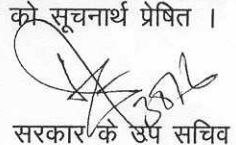 को सूचनार्थ प्रेषित ।
सरकार के उप सचिव